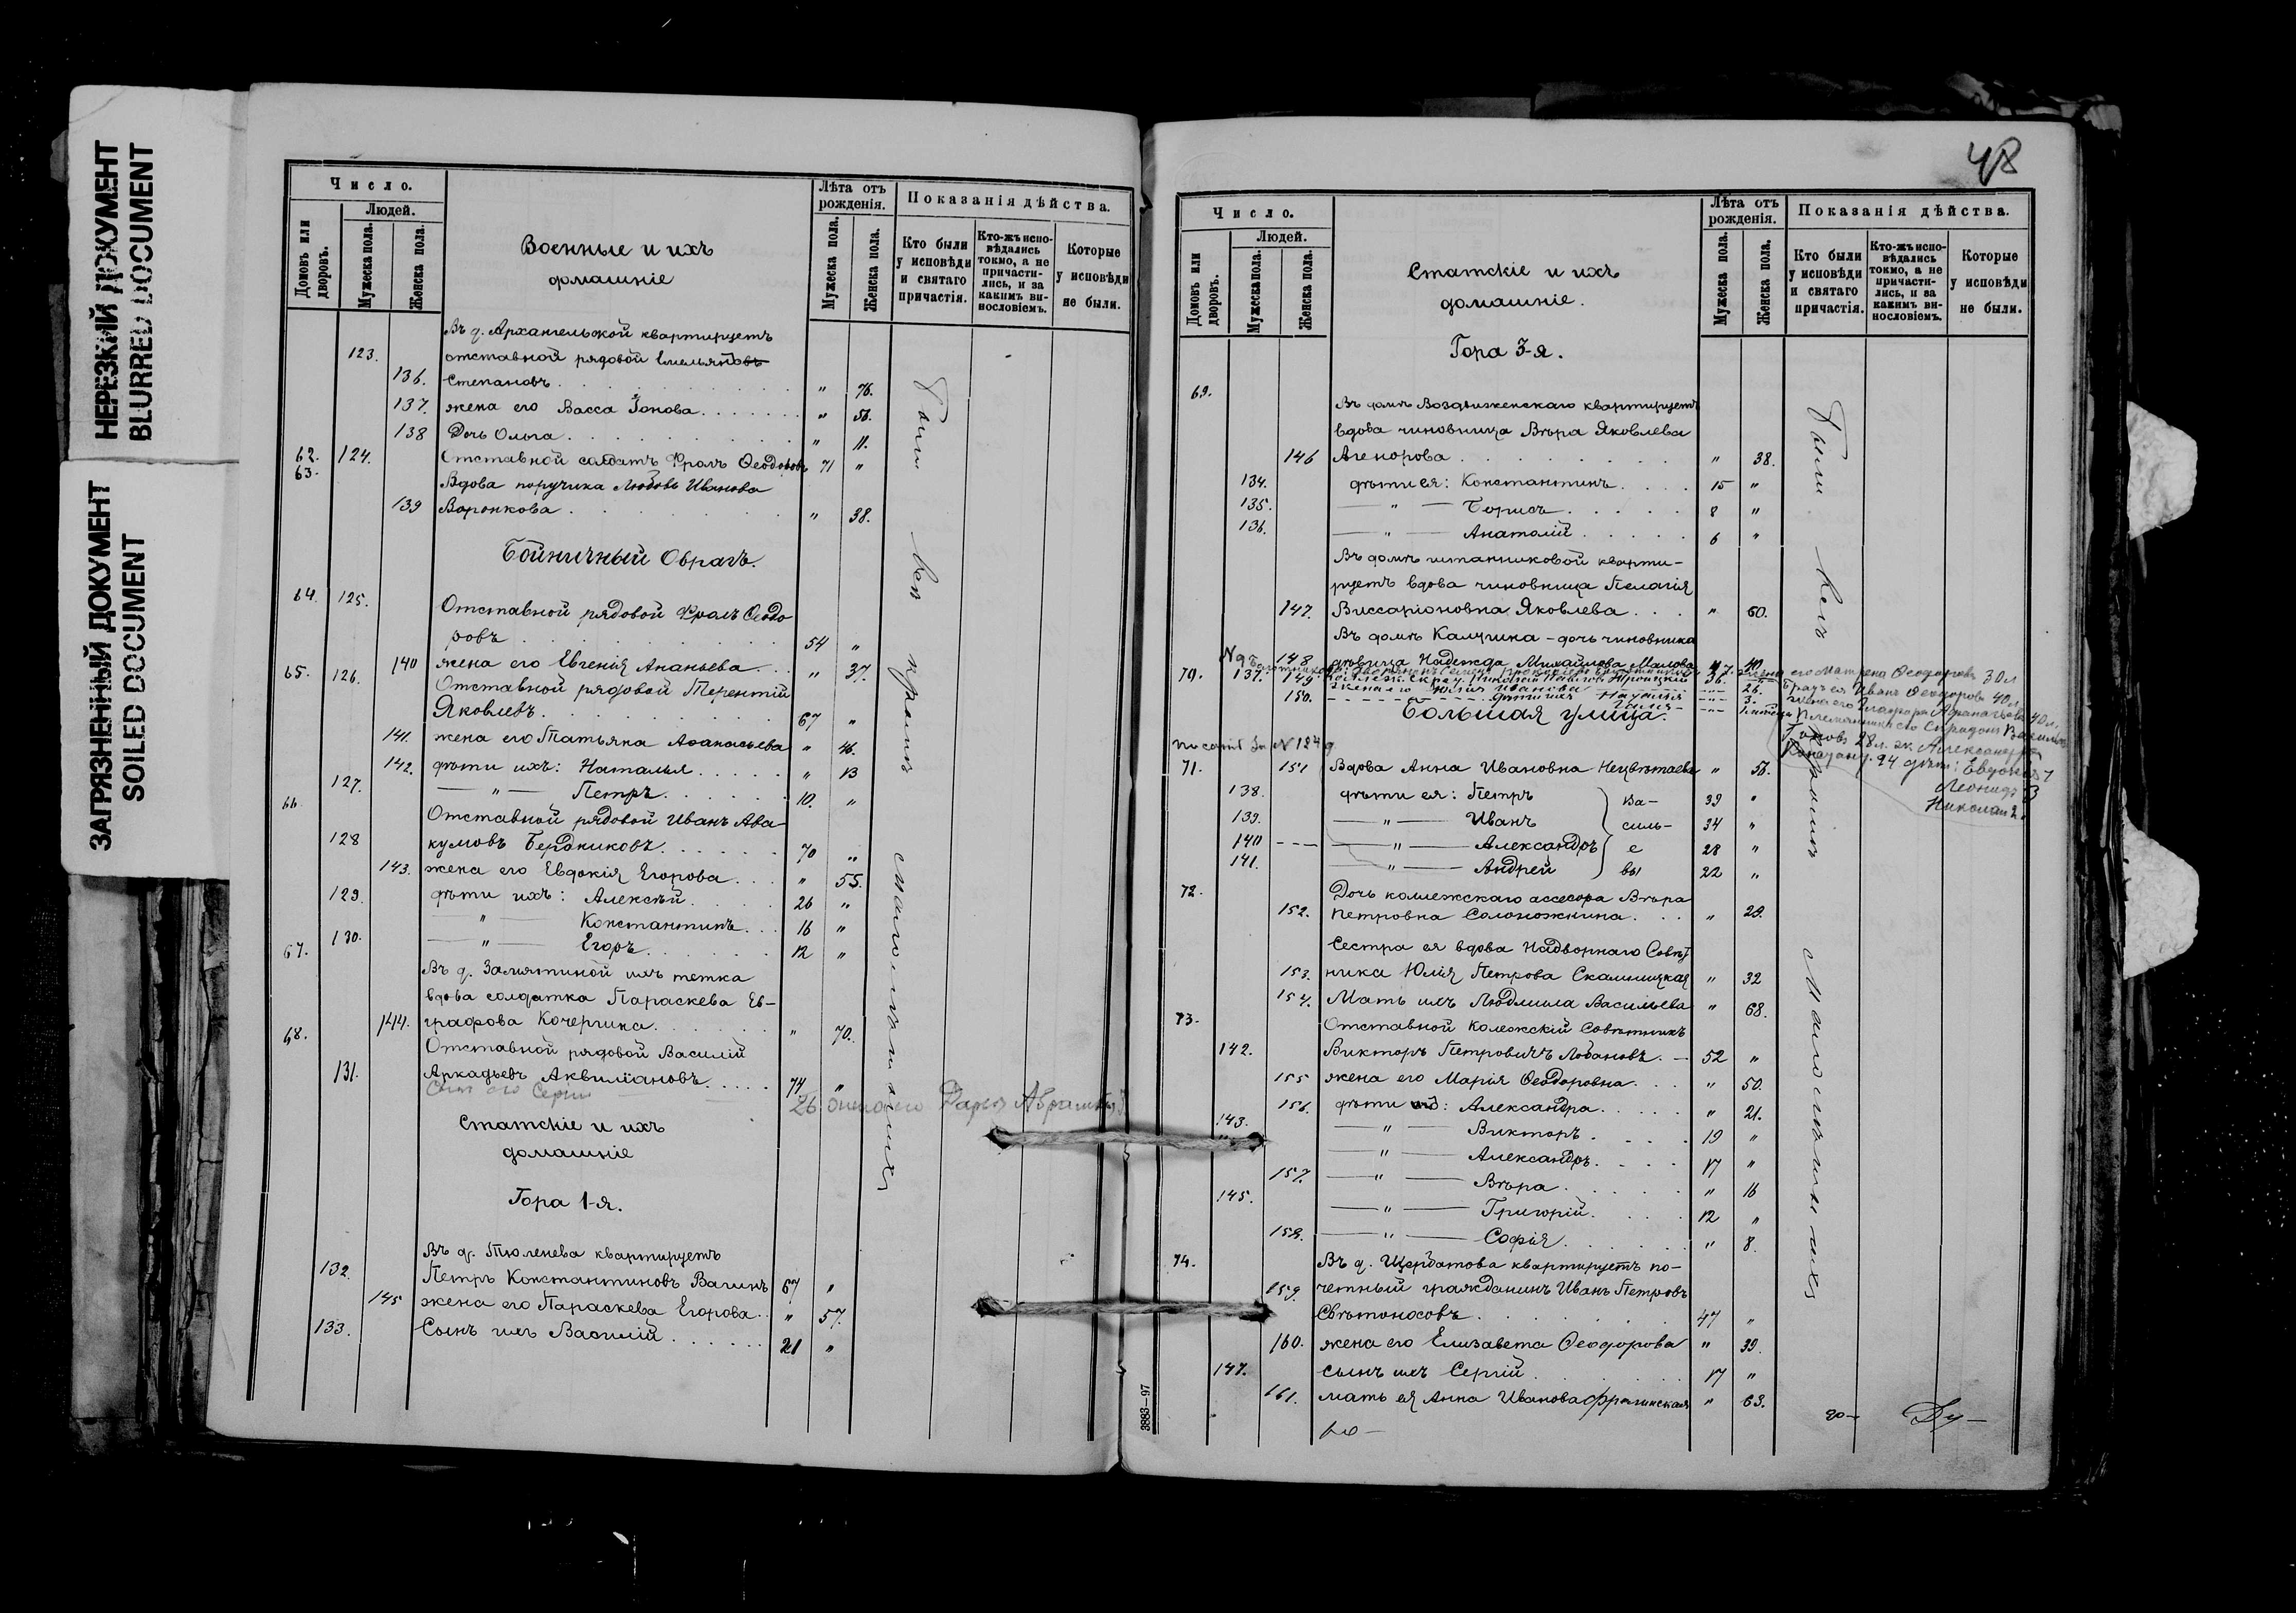 НЕРЕЗКИЙ ДОКУМЕНТ
BLURRED DOCUMENT
ЗАГРЯЗНЕННЫЙ ДОКУМЕНТ
SOILED DOCUMENT
Число.
Людей.
Домовъ или дворовъ.
Мужеска пола.
Женска пола.
Военные и ихъ
домашніе
Лѣта отъ рожденія.
Мужеска пола.
Женска пола.
Показанія дѣйства.
Кто были у исповѣди и святаго причастія.
Кто-жъ исповѣдались токмо, а не причастились, и за какимъ винословіемъ.
Которые у исповѣди не были.
Въ д. Архангельской квартируетъ
123. отставной рядовой Емельянъ
136. Степановъ . . . " 76.
137. жена его Васса Іонова . . . " 56.
138 Дочь Ольга . . . " 11.
62. 124. Отставной солдатъ Фролъ Ѳеодоровъ 71 "
63. Вдова поручика Любовь Иванова
139 Воронкова . . . " 38.
Бойничный Оврагъ.
64. 125. Отставной рядовой Фролъ Ѳеодо
ровъ . . . 54 "
140 жена его Евгенія Ананьева . . . " 37.
65. 126. Отставной рядовой Терентій
Яковлевъ . . . 67 "
141. жена его Татьяна Аѳанасьева " 46.
142. дѣти ихъ: Наталья . . . " 13
127. — " — Петръ . . . 10. "
66 Отставной рядовой Иванъ Ава-
128 кумовъ Бердниковъ . . . 70 "
143. жена его Евдокія Егорова . . . " 55.
129. дѣти ихъ: Алексѣй . . . 26 "
" — Константинъ . . . 16 "
130. — " — Егоръ . . . 12 "
67. Въ д. Замятиной ихъ тетка
вдова солдатка Параскева Ев-
144. графова Кочергина . . . " 70.
68. Отставной рядовой Василій
131. Аркадьевъ Аквиліановъ . . . 74. "
Сынъ его Сергій 26. жена его Дарья
Статскіе и ихъ
домашніе
Гора 1-я.
Въ д. Тюленева квартируетъ
132. Петръ Константиновъ Вагинъ 67 "
145 жена его Параскева Егорова . . " 57.
133. Сынъ ихъ Василій . . . 21 "
Были всѣ кромѣ малолѣтнихъ
48
Число.
Людей.
Домовъ или дворовъ.
Мужеска пола.
Женска пола.
Статскіе и ихъ
домашніе.
Лѣта отъ рожденія.
Мужеска пола.
Женска пола.
Показанія дѣйства.
Кто были у исповѣди и святаго причастія.
Кто-жъ исповѣдались токмо, а не причастились, и за какимъ винословіемъ.
Которые у исповѣди не были.
Гора 3-я.
69. Въ домѣ Воздвиженскаго квартируетъ
вдова чиновница Вѣра Яковлева
146 Агенорова . . . " 38.
134. дѣти ея: Константинъ . . . 15 "
135. — " — Борисъ . . . 8 "
136. — " — Анатолій . . . 6 "
Въ домѣ кварти-
руетъ вдова чиновница Пелагія
147. Виссаріоновна Яковлева . . . " 60.
Въ домѣ Калугина - дочь чиновника
148 дѣвица Надежда Михайлова Малова " 40
70. 137. 149
жена его Юлія Иванова 26.
150. 3.
жена его Матрена Ѳеодорова 30 л
Братъ ея Иванъ Ѳеодоровъ 40 л.
жена его Глафира 40 л.
Яковъ 28 л. ж. Александра
24 дѣти: Евдокія 7
Леонидъ 3
Николай 2.
Большая улица.
71. 151 Вдова Анна Ивановна Нецвѣтаева " 56.
138. дѣти ея: Петръ Ва- 39 "
139. — " — Иванъ силь- 34 "
140 — " — Александръ е 28 "
141. — " — Андрей вы 22 "
72. Дочь коллежскаго ассесора Вѣра
152. Петровна Солоножкина . . . " 29.
Сестра ея вдова Надворнаго Совѣт
153. ника Юлія Петрова Скальницкая " 32
154. Мать ихъ Людмила Васильева " 68.
73. Отставной Колежскій Совѣтникъ
142. Викторъ Петровичъ Лобановъ. — 52 "
155 жена его Марія Ѳеодоровна . . . " 50.
156. дѣти ихъ: Александра . . . " 21.
143. — " — Викторъ . . . 19 "
" — " — Александръ . . . 17 "
157. — " — Вѣра . . . " 16
145. — " — Григорій . . . 12 "
158. — " — Софія . . . " 8.
74. Въ д. Щербатова квартируетъ по-
159. четный гражданинъ Иванъ Петровъ
Свѣтоносовъ . . . 47 "
160. жена его Елизавета Ѳеодорова " 39.
147. сынъ ихъ Сергій . . . 17 "
161. мать ея Анна Иванова " 63.
Были всѣ кромѣ малолѣтнихъ
3883—97